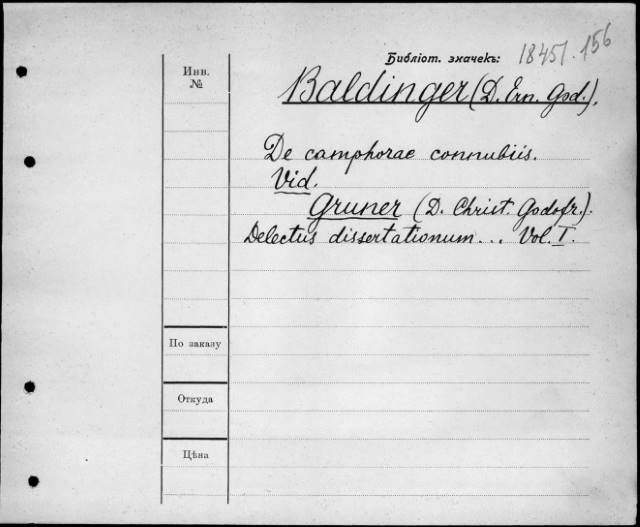 Библіот. значекъ: 18451.156
Инв.
№
Baldinger (D. Ern. God.).
De camphorae connubiis.
Vid.
Gruner (D. Christ. Godofr.).
Delectus dissertationum... Vol. I.
По заказу
Откуда
Цѣна